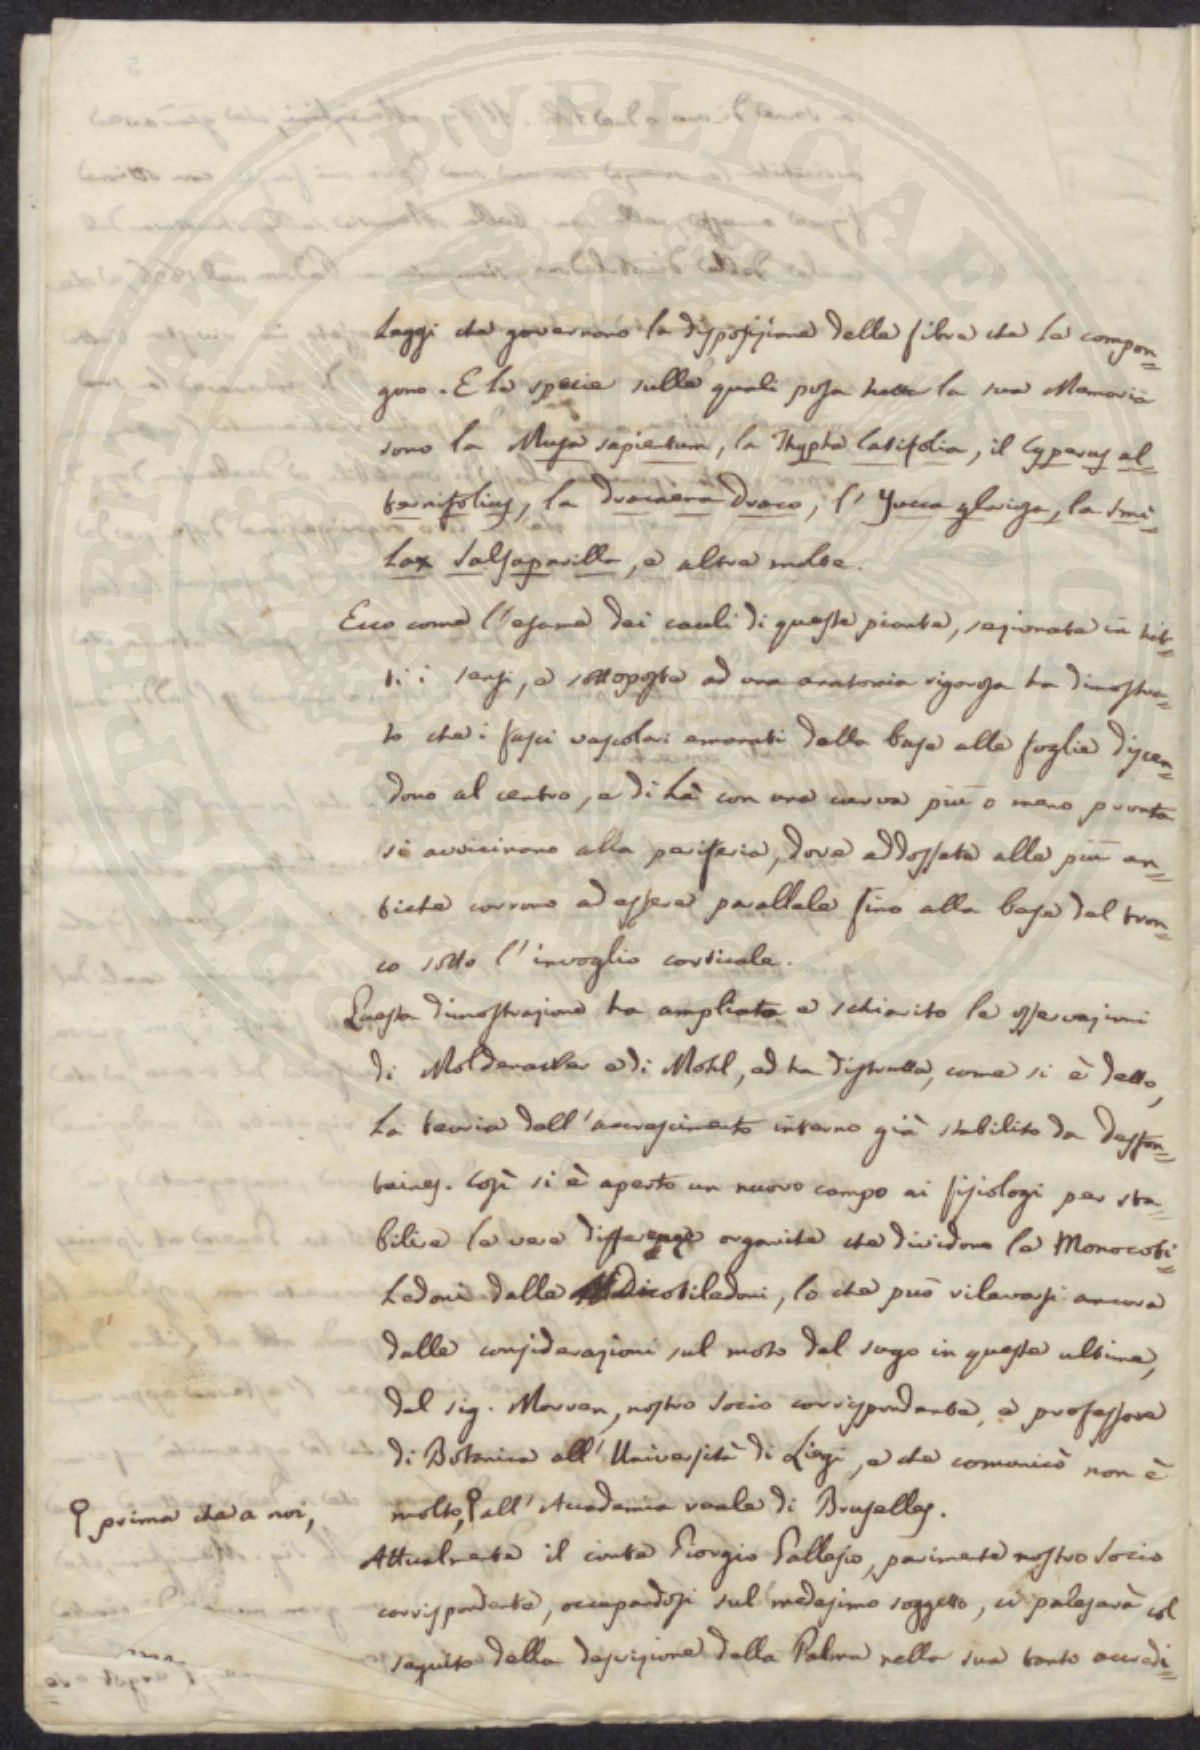 PVBLICAE
leggi che governano la disposizione delle fibre che le compon=
gono. E le specie sulle quali posa la sua Memoria
sono la Musa sapientum, la Thypha latifolia, il Cyperus al=
ternifolius, la dracaena draco, l'Yucca gloriosa, la smi=
lax salsaparilla, e altre molte.
Ecco come l'esame dei cauli di queste piante, sezionate in tut=
ti i sensi, e sottoposte ad una anatomia rigorosa ha dimostra=
to che i fasci vascolari emanati dalla base alle foglie discen=
dono al centro, e di là con una curva più o meno pronta
si avvicinano alla periferia, dove addossate alle più an=
tiche corrono ad essere parallele fino alla base del tron=
co sotto l'invoglio corticale.
Questa dimostrazione ha ampliato e schiarito le osservazioni
di Moldenawer e di Mohl, ed ha distrutta, come si è detto,
la teoria dell'accrescimento interno già stabilito da Desfon=
taines. Così si è aperto un nuovo campo ai fisiologi per sta=
bilire le vere differenze organiche che dividono le Monocoti=
ledoni dalle Dicotiledoni, lo che può rilevarsi ancora
dalle considerazioni sul moto del sugo in queste ultime,
del sig. Morren, nostro socio corrispondente, e professore
di Botanica all'Università di Liegi, e che comunicò non è
molto, all'Accademia reale di Bruselles.
prima che a noi,
Attualmente il conte Giorgio Gallesio, parimente nostro socio
corrispondente, occupandosi sul medesimo soggetto, ci paleserà col
seguito della descrizione della Palma nella sua tanto accredi=